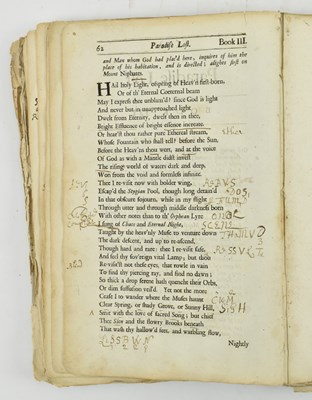 62 Paradise Lost. Book III.
and Man whom God had plac'd here, inquires of him the
place of his habitation, and is directed; alights first on
Mount Niphates.
HAil holy Light, ofspring of Heav'n first-born,
Or of th' Eternal Coeternal beam
May I express thee unblam'd? since God is light
And never but in unapproached light
Dwelt from Eternity, dwelt then in thee,
Bright Effluence of bright essence increate.
Or hear'st thou rather pure Ethereal stream,
Whose Fountain who shall tell? before the Sun,
Before the Heav'ns thou wert, and at the voice
Of God as with a Mantle didst invest
The rising world of waters dark and deep,
Won from the void and formless infinite.
Thee I re-visit now with bolder wing,
Escap'd the Stygian Pool, though long detain'd
In that obscure sojourn, while in my flight
Through utter and through middle darkness born
With other notes than to th' Orphean Lyre
I sung of Chaos and Eternal Night,
Taught by the heav'nly Muse to venture down
The dark descent, and up to re-ascend,
Though hard and rare: thee I re-visit safe,
And feel thy sov'reign vital Lamp; but thou
Re-visit'st not these eyes, that rowle in vain
To find thy piercing ray, and find no dawn;
So thick a drop serene hath quencht their Orbs,
Or dim suffusion veil'd. Yet not the more
Cease I to wander where the Muses haunt
Clear Spring, or shady Grove, or Sunny Hill,
Smit with the love of sacred Song; but chief
Thee Sion and the flowry Brooks beneath
That wash thy hallow'd feet, and warbling flow,
Nightly